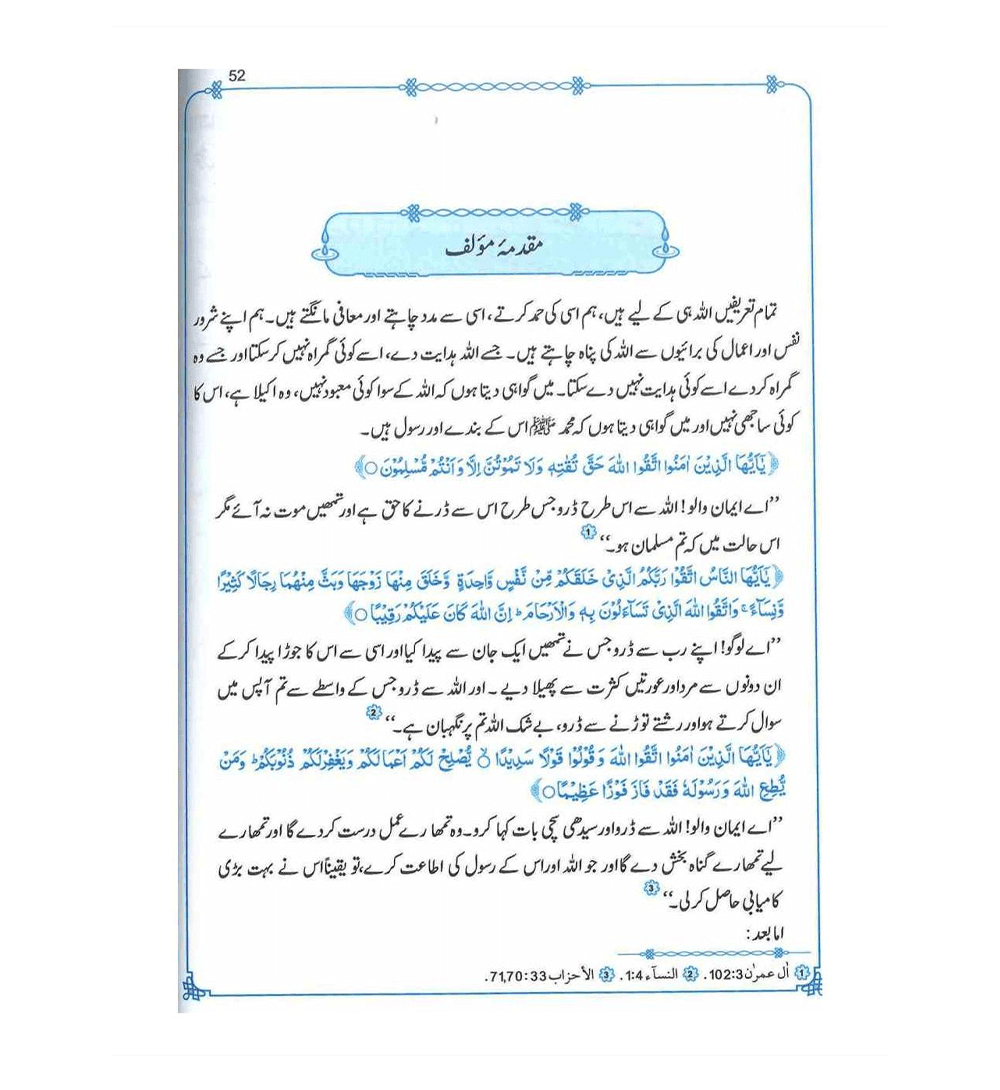 52
مقدمۂ مؤلف
تمام تعریفیں اللہ ہی کے لیے ہیں، ہم اسی کی حمد کرتے، اسی سے مدد چاہتے اور معافی مانگتے ہیں۔ ہم اپنے شرور
نفس اور اعمال کی برائیوں سے اللہ کی پناہ چاہتے ہیں۔ جسے اللہ ہدایت دے، اسے کوئی گمراہ نہیں کر سکتا اور جسے وہ
گمراہ کر دے اسے کوئی ہدایت نہیں دے سکتا۔ میں گواہی دیتا ہوں کہ اللہ کے سوا کوئی معبود نہیں، وہ اکیلا ہے، اس کا
کوئی ساجھی نہیں اور میں گواہی دیتا ہوں کہ محمد ﷺ اس کے بندے اور رسول ہیں۔
﴿يٰۤاَيُّهَا الَّذِيْنَ اٰمَنُوا اتَّقُوا اللّٰهَ حَقَّ تُقٰتِهٖ وَلَا تَمُوْتُنَّ اِلَّا وَاَنْتُمْ مُّسْلِمُوْنَ○﴾
’’اے ایمان والو! اللہ سے اس طرح ڈرو جس طرح اس سے ڈرنے کا حق ہے اور تمھیں موت نہ آئے مگر
اس حالت میں کہ تم مسلمان ہو۔‘‘ 1
﴿يٰۤاَيُّهَا النَّاسُ اتَّقُوْا رَبَّكُمُ الَّذِيْ خَلَقَكُمْ مِّنْ نَّفْسٍ وَّاحِدَةٍ وَّخَلَقَ مِنْهَا زَوْجَهَا وَبَثَّ مِنْهُمَا رِجَالًا كَثِيْرًا
وَّنِسَآءً ۚ وَاتَّقُوا اللّٰهَ الَّذِيْ تَسَآءَلُوْنَ بِهٖ وَالْاَرْحَامَ ؕ اِنَّ اللّٰهَ كَانَ عَلَيْكُمْ رَقِيْبًا○﴾
’’اے لوگو! اپنے رب سے ڈرو جس نے تمھیں ایک جان سے پیدا کیا اور اسی سے اس کا جوڑا پیدا کر کے
ان دونوں سے مرد اور عورتیں کثرت سے پھیلا دیے۔ اور اللہ سے ڈرو جس کے واسطے سے تم آپس میں
سوال کرتے ہو اور رشتے توڑنے سے ڈرو، بے شک اللہ تم پر نگہبان ہے۔‘‘ 2
﴿يٰۤاَيُّهَا الَّذِيْنَ اٰمَنُوا اتَّقُوا اللّٰهَ وَقُوْلُوْا قَوْلًا سَدِيْدًا ○ۙ يُّصْلِحْ لَكُمْ اَعْمَالَكُمْ وَيَغْفِرْ لَكُمْ ذُنُوْبَكُمْ ؕ وَمَنْ
يُّطِعِ اللّٰهَ وَرَسُوْلَهٗ فَقَدْ فَازَ فَوْزًا عَظِيْمًا○﴾
’’اے ایمان والو! اللہ سے ڈرو اور سیدھی سچی بات کہا کرو۔ وہ تمھارے عمل درست کر دے گا اور تمھارے
لیے تمھارے گناہ بخش دے گا اور جو اللہ اور اس کے رسول کی اطاعت کرے، تو یقیناً اس نے بہت بڑی
کامیابی حاصل کر لی۔‘‘ 3
اما بعد:
1 اٰل عمرٰن 102:3. 2 النسآء 1:4. 3 الأحزاب 71,70:33.